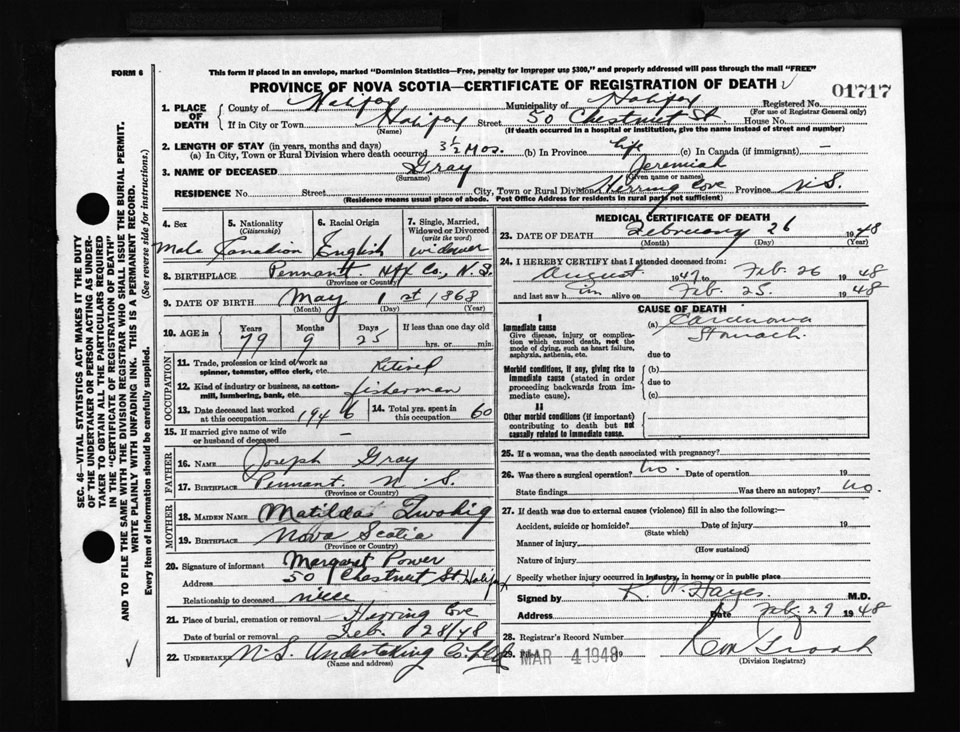 FORM 6
This form if placed in an envelope, marked "Dominion Statistics—Free, penalty for improper use $300," and properly addressed will pass through the mail "FREE"
PROVINCE OF NOVA SCOTIA—CERTIFICATE OF REGISTRATION OF DEATH
01717
1. PLACE OF DEATH County of Halifax Municipality of Halifax Registered No.
(For use of Registrar General only)
If in City or Town Halifax Street 50 Chestnut St. House No.
(Name) (If death occurred in a hospital or institution, give the name instead of street and number)
2. LENGTH OF STAY (in years, months and days)
(a) In City, Town or Rural Division where death occurred 3½ Mos. (b) In Province life (c) In Canada (if immigrant) —
3. NAME OF DECEASED Gray Jeremiah
(Surname) (Given name or names)
RESIDENCE No. Street City, Town or Rural Division Herring Cove Province N.S.
(Residence means usual place of abode. Post Office Address for residents in rural parts not sufficient)
SEC. 46—VITAL STATISTICS ACT MAKES IT THE DUTY
OF THE UNDERTAKER OR PERSON ACTING AS UNDER-
TAKER TO OBTAIN ALL THE PARTICULARS REQUIRED
IN THE "CERTIFICATE OF REGISTRATION OF DEATH"
AND TO FILE THE SAME WITH THE DIVISION REGISTRAR WHO SHALL ISSUE THE BURIAL PERMIT.
WRITE PLAINLY WITH UNFADING INK. THIS IS A PERMANENT RECORD.
Every item of information should be carefully supplied. (See reverse side for instructions.)
4. Sex 5. Nationality (Citizenship) 6. Racial Origin 7. Single, Married, Widowed or Divorced (write the word)
Male Canadian English widower
8. BIRTHPLACE Pennantt Hfx Co., N.S.
(Province or Country)
9. DATE OF BIRTH May 1st 1868
(Month) (Day) (Year)
10. AGE in Years Months Days If less than one day old
79 9 25 hrs. or min.
OCCUPATION
11. Trade, profession or kind of work as spinner, teamster, office clerk, etc. Retired
12. Kind of industry or business, as cotton-mill, lumbering, bank, etc. fisherman
13. Date deceased last worked at this occupation 1946 14. Total yrs. spent in this occupation 60
15. If married give name of wife or husband of deceased —
FATHER
16. NAME Joseph Gray
17. BIRTHPLACE Pennant N.S.
(Province or Country)
MOTHER
18. MAIDEN NAME Matilda Twohig
19. BIRTHPLACE Nova Scotia
(Province or Country)
20. Signature of informant Margaret Power
Address 50 Chestnut St. Halifax
Relationship to deceased niece
21. Place of burial, cremation or removal Herring Cove
Date of burial or removal Feb. 28/48
22. UNDERTAKER N.S. Undertaking Co. Ltd
(Name and address)
MEDICAL CERTIFICATE OF DEATH
23. DATE OF DEATH February 26 1948
(Month) (Day) (Year)
24. I HEREBY CERTIFY that I attended deceased from:
August 1947 to Feb. 26 1948
and last saw him alive on Feb. 25. 1948
CAUSE OF DEATH
I
Immediate cause
Give disease, injury or complication which caused death, not the mode of dying, such as heart failure, asphyxia, asthenia, etc.
(a) Carcinoma
Stomach.
due to
Morbid conditions, if any, giving rise to immediate cause (stated in order proceeding backwards from immediate cause).
(b)
due to
(c)
II
Other morbid conditions (if important) contributing to death but not causally related to immediate cause.
25. If a woman, was the death associated with pregnancy?
26. Was there a surgical operation? No. Date of operation 19
State findings Was there an autopsy? No.
27. If death was due to external causes (violence) fill in also the following:—
Accident, suicide or homicide? Date of injury 19
(State which)
Manner of injury
(How sustained)
Nature of injury
Specify whether injury occurred in industry, in home, or in public place
Signed by Hayes M.D.
Address Date Feb. 29 1948
28. Registrar's Record Number
29. Filed MAR 4 1948 19
(Division Registrar)